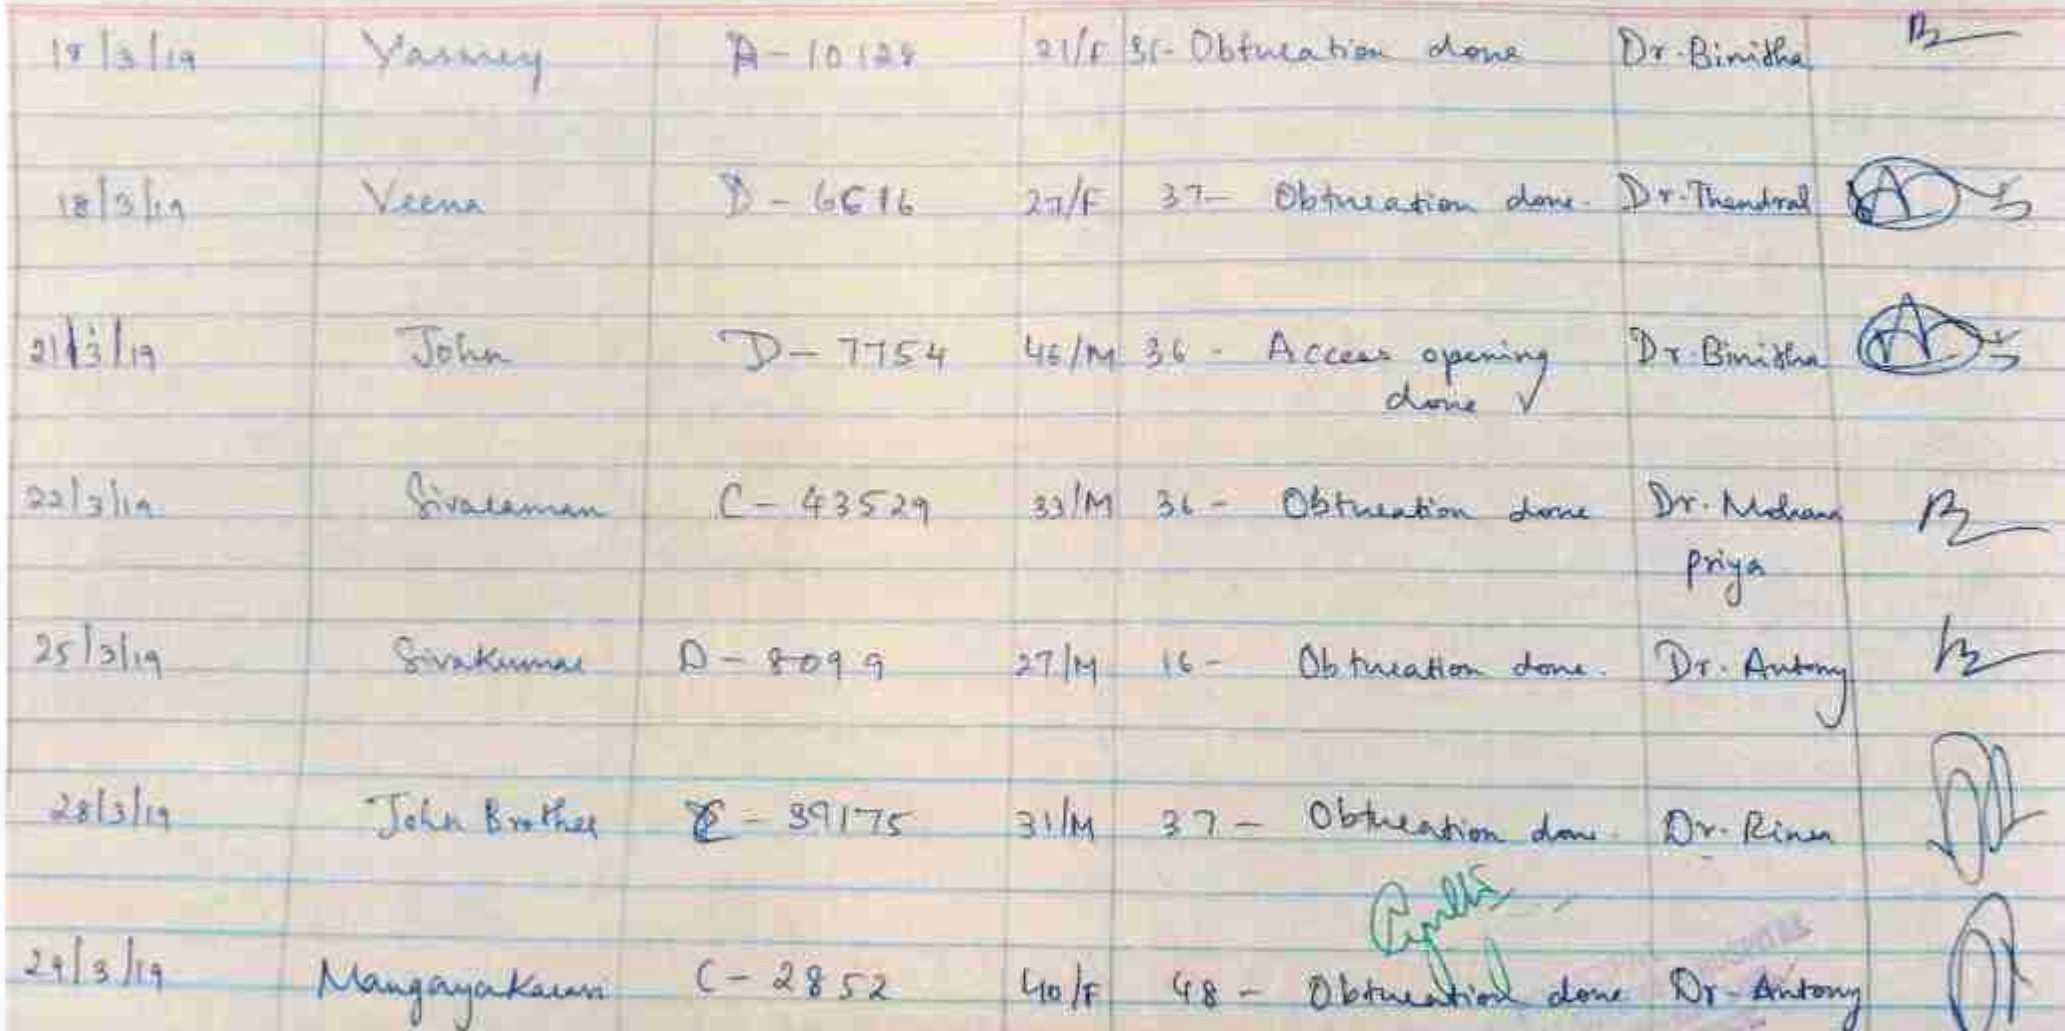 18/3/19 Yasmey A-10128 21/F 36- Obturation done Dr. Binitha
18/3/19 Veena D-6616 27/F 37- Obturation done. Dr. Thendral
21/3/19 John D-7754 46/M 36- Access opening Dr. Binitha
done ✓
22/3/19 Sivaraman C-43529 33/M 36- Obturation done Dr. Mohana
priya
25/3/19 Sivakumar D-8099 27/M 16- Obturation done. Dr. Antony
28/3/19 John Brother C-39175 31/M 37- Obturation done. Dr. Rinea
29/3/19 Mangayakarasi C-2852 40/F 48- Obturation done Dr. Antony